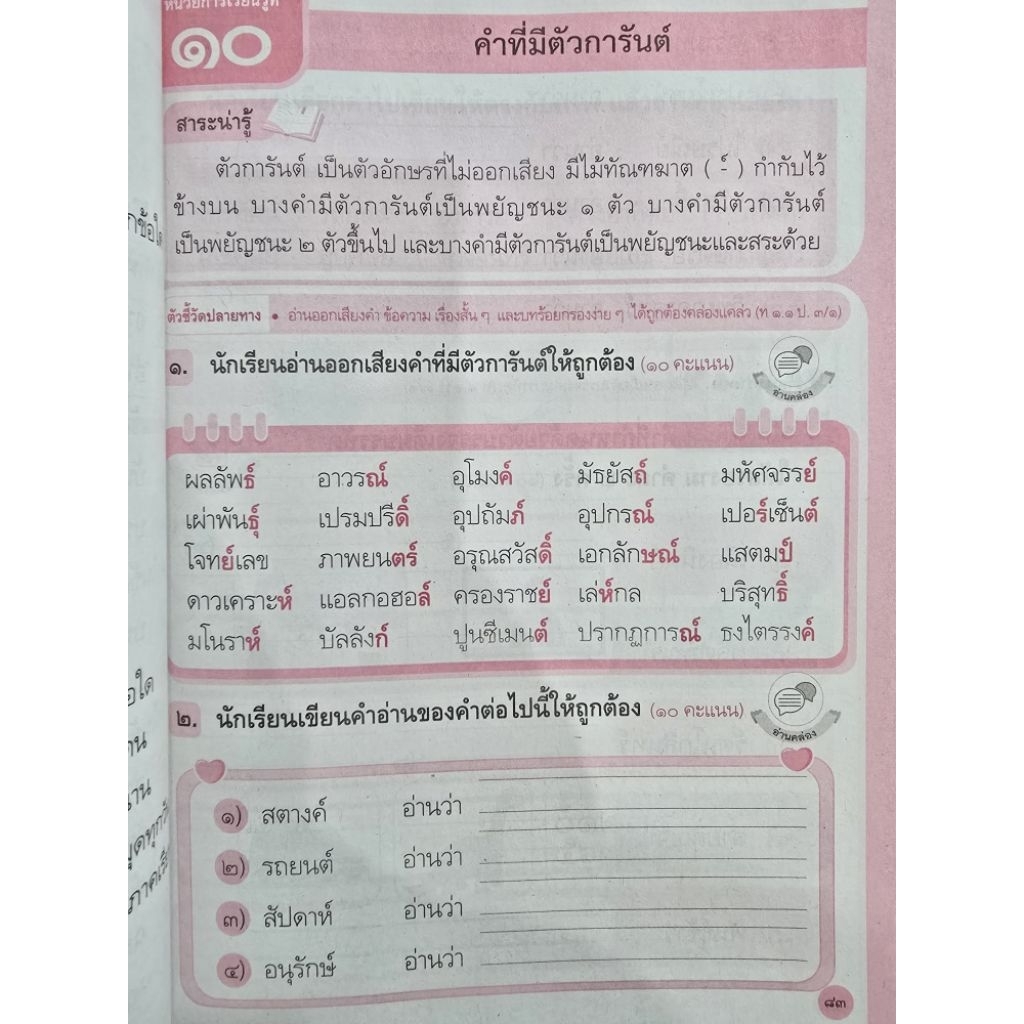 หน่วยการเรียนรู้ที่
๑๐
คำที่มีตัวการันต์
สาระน่ารู้
ตัวการันต์ เป็นตัวอักษรที่ไม่ออกเสียง มีไม้ทัณฑฆาต ( -์ ) กำกับไว้
ข้างบน บางคำมีตัวการันต์เป็นพยัญชนะ ๑ ตัว บางคำมีตัวการันต์
เป็นพยัญชนะ ๒ ตัวขึ้นไป และบางคำมีตัวการันต์เป็นพยัญชนะและสระด้วย
ตัวชี้วัดปลายทาง • อ่านออกเสียงคำ ข้อความ เรื่องสั้น ๆ และบทร้อยกรองง่าย ๆ ได้ถูกต้องคล่องแคล่ว (ท ๑.๑ ป. ๓/๑)
๑. นักเรียนอ่านออกเสียงคำที่มีตัวการันต์ให้ถูกต้อง (๑๐ คะแนน)
อ่านคล่อง
ผลลัพธ์ อาวรณ์ อุโมงค์ มัธยัสถ์ มหัศจรรย์
เผ่าพันธุ์ เปรมปรีดิ์ อุปถัมภ์ อุปกรณ์ เปอร์เซ็นต์
โจทย์เลข ภาพยนตร์ อรุณสวัสดิ์ เอกลักษณ์ แสตมป์
ดาวเคราะห์ แอลกอฮอล์ ครองราชย์ เล่ห์กล บริสุทธิ์
มโนราห์ บัลลังก์ ปูนซีเมนต์ ปรากฏการณ์ ธงไตรรงค์
๒. นักเรียนเขียนคำอ่านของคำต่อไปนี้ให้ถูกต้อง (๑๐ คะแนน)
อ่านคล่อง
๑) สตางค์ อ่านว่า
๒) รถยนต์ อ่านว่า
๓) สัปดาห์ อ่านว่า
๔) อนุรักษ์ อ่านว่า
๘๓